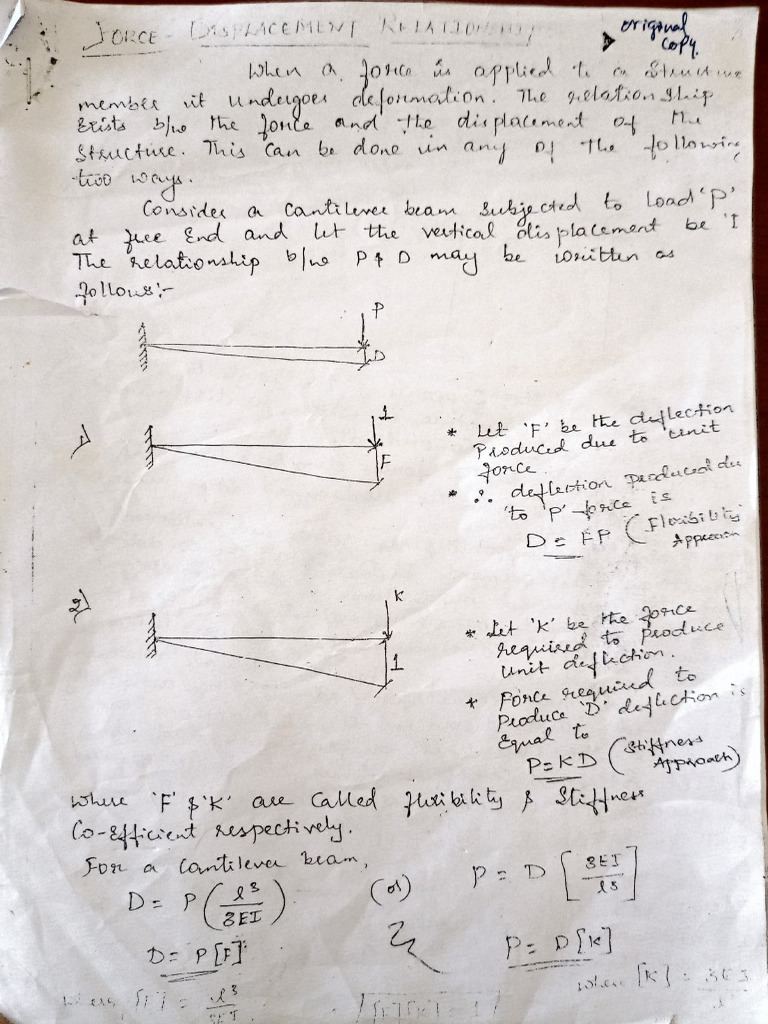 FORCE - DISPLACEMENT RELATIONSHIP
original
copy.
When a force is applied to a structure
member it undergoes deformation. The relation ship
Exists b/w the force and the displacement of the
Structure. This can be done in any of the following
two ways.
Consider a cantilever beam subjected to load 'P'
at free End and let the vertical displacement be
The relationship b/w P & D may be written as
follows:-
P
D
1)
1
F
* Let 'F' be the deflection
Produced due to unit
force.
* ∴ deflection produced du
to 'P' force is
D = FP (Flexibility
Approach
2)
K
1
* Let 'K' be the force
required to produce
unit deflection.
* Force required to
Produce 'D' deflection is
Equal to
P = KD (Stiffness
Approach)
Where 'F' & 'K' are called flexibility & Stiffness
Co-Efficient respectively.
For a Cantilever beam,
D = P (l³/3EI) (or) P = D [3EI/l³]
D = P[F] P = D[K]
where [F] = l³/3EI where [K] = 3EI/l
[F][K] = 1